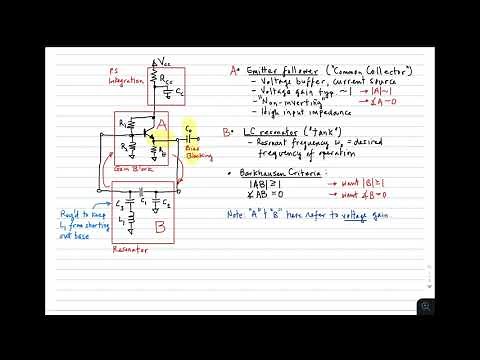 Vcc
P.S.
Integration
Rcc
Cc
R1
A
Co
R2
RE
Bias
Blocking
Gain Block
C3
C1
C2
L1
B
Req'd to keep
L1 from shorting
out base
Resonator
A• Emitter follower ("Common Collector")
- Voltage buffer, current source
- Voltage gain typ. ~1 → |A|~1
- "Non-inverting" → ∡A~0
- High input impedance
B• LC resonator ("tank")
- Resonant frequency ω0 = desired
frequency of operation
• Barkhausen Criteria:
|AB| ≥ 1 → want |B| ≥ 1
∡AB = 0 → want ∡B = 0
Note: "A" & "B" here refer to voltage gain